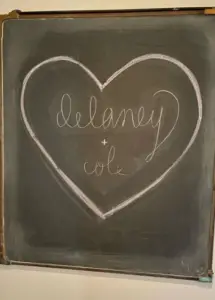 delaney
+
cole